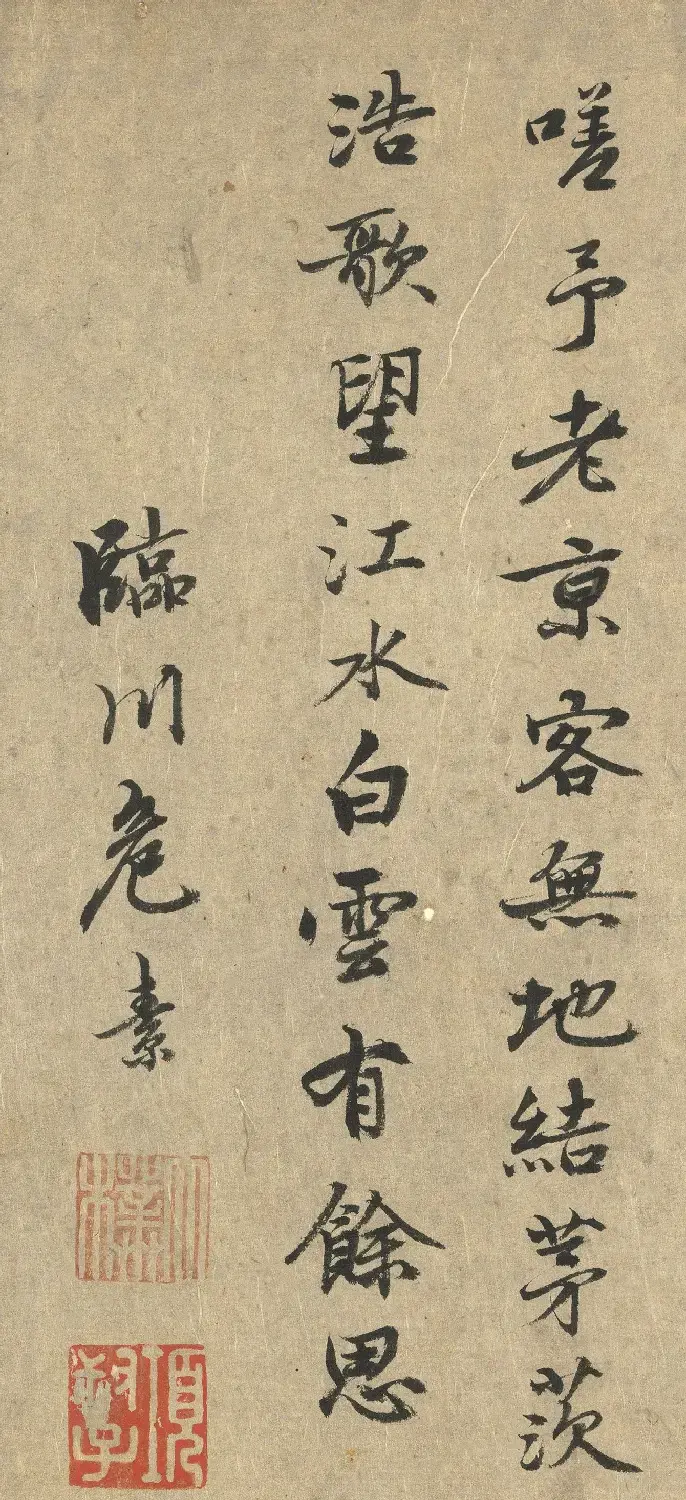 嗟予老京客無地結茅茨
浩歌望江水白雲有餘思
臨川危素